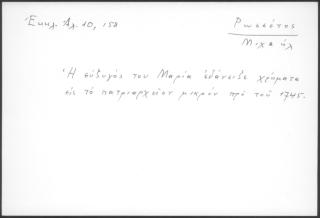 Ἐκκλ. Ἀλ. 10, 158
Ρωσσέτος
Μιχαήλ
Ἡ σύζυγός του Μαρία ἐδάνεισε χρήματα
εἰς τὸ πατριαρχεῖον μικρὸν πρὸ τοῦ 1745.